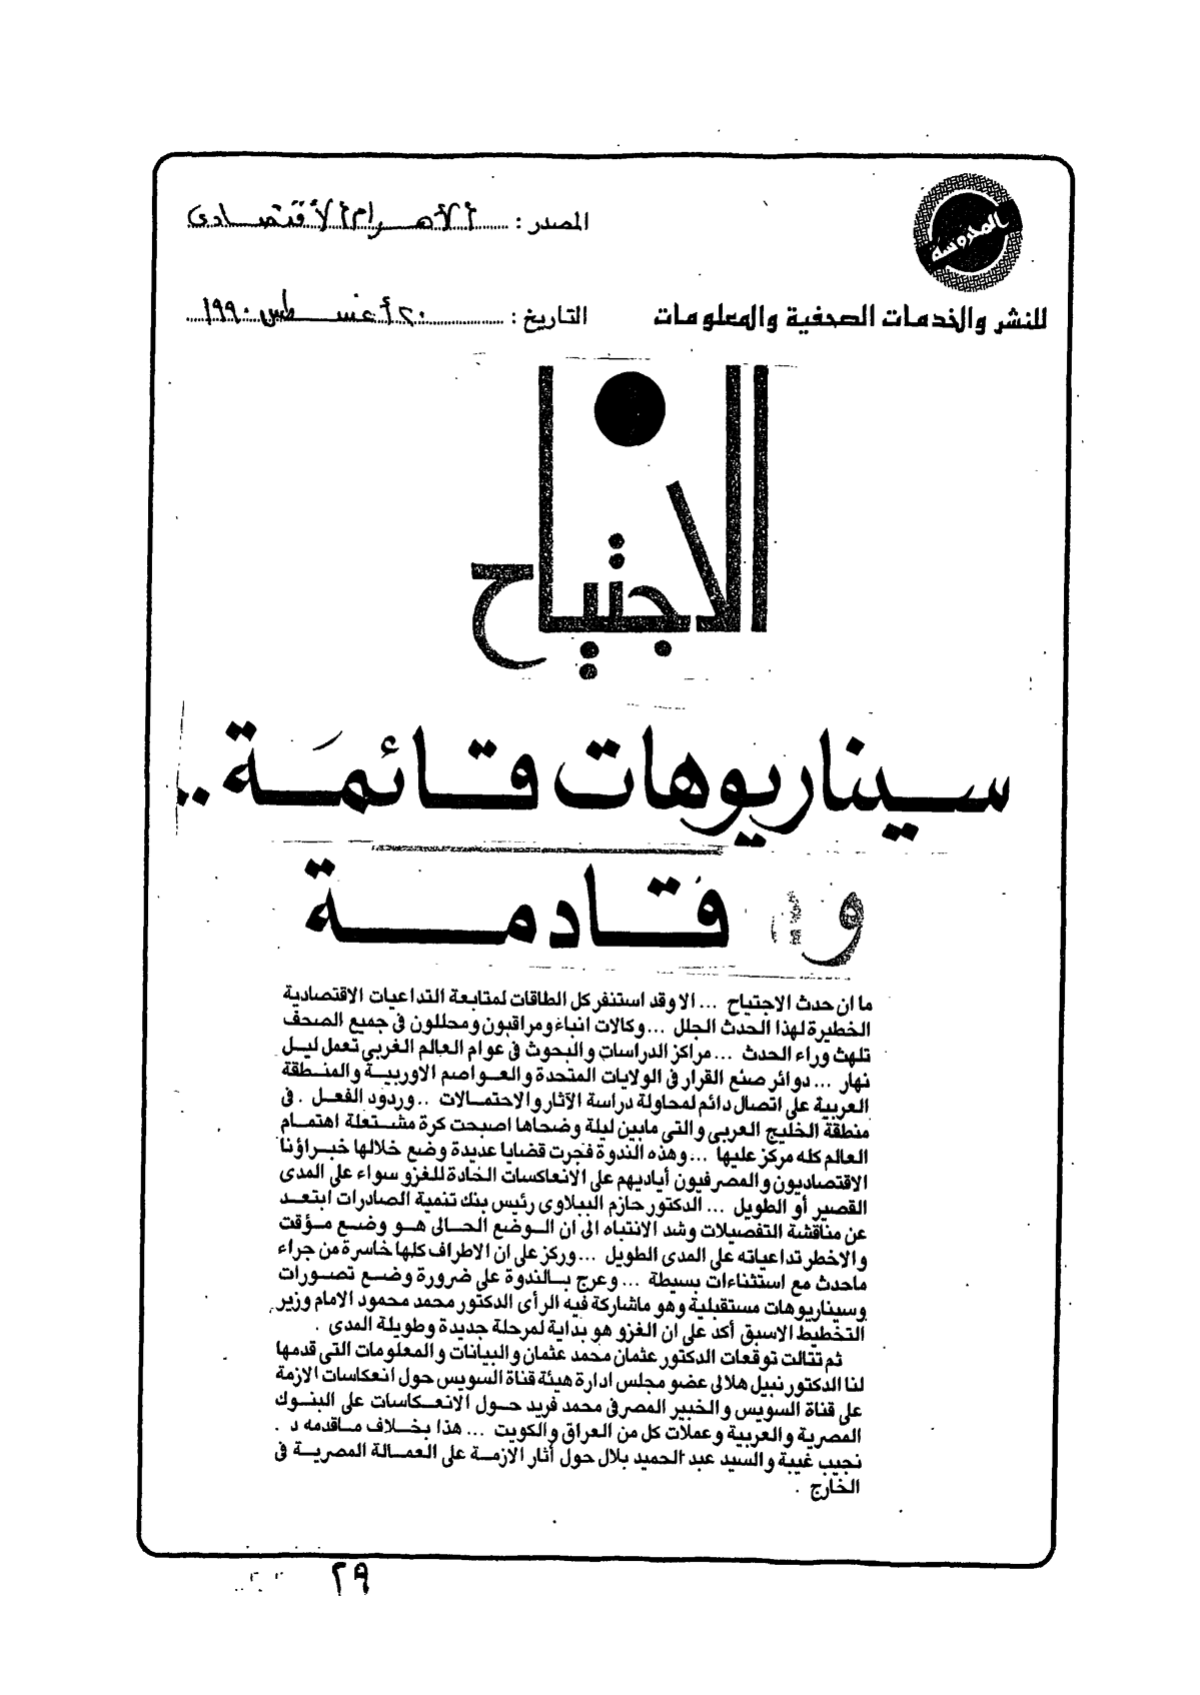 المحروسة
المصدر : الأهرام الأقتصادى
للنشر والخدمات الصحفية والمعلومات
التاريخ : ٢٠ أغسطس ١٩٩٠
الاجتياح
سيناريوهات قائمة ..
و قادمة
ما ان حدث الاجتياح ... الا وقد استنفر كل الطاقات لمتابعة التداعيات الاقتصادية
الخطيرة لهذا الحدث الجلل ... وكالات انباء ومراقبون ومحللون فى جميع الصحف
تلهث وراء الحدث ... مراكز الدراسات والبحوث فى عوام العالم الغربى تعمل ليل
نهار ... دوائر صنع القرار فى الولايات المتحدة والعواصم الاوربية والمنطقة
العربية على اتصال دائم لمحاولة دراسة الآثار والاحتمالات .. وردود الفعل . فى
منطقة الخليج العربى والتى مابين ليلة وضحاها اصبحت كرة مشتعلة اهتمام
العالم كله مركز عليها ... وهذه الندوة فجرت قضايا عديدة وضع خلالها خبراؤنا
الاقتصاديون والمصرفيون أياديهم على الانعاكسات الخادة للغزو سواء على المدى
القصير أو الطويل ... الدكتور حازم الببلاوى رئيس بنك تنمية الصادرات ابتعد
عن مناقشة التفصيلات وشد الانتباه الى ان الوضع الحالى هو وضع مؤقت
والاخطر تداعياته على المدى الطويل ... وركز على ان الاطراف كلها خاسرة من جراء
ماحدث مع استثناءات بسيطة ... وعرج بالندوة على ضرورة وضع تصورات
وسيناريوهات مستقبلية وهو ماشاركة فيه الرأى الدكتور محمد محمود الامام وزير
التخطيط الاسبق أكد على ان الغزو هو بداية لمرحلة جديدة وطويلة المدى .
ثم تتالت توقعات الدكتور عثمان محمد عثمان والبيانات والمعلومات التى قدمها
لنا الدكتور نبيل هلالى عضو مجلس ادارة هيئة قناة السويس حول انعكاسات الازمة
على قناة السويس والخبير المصرفى محمد فريد حول الانعكاسات على البنوك
المصرية والعربية وعملات كل من العراق والكويت ... هذا بخلاف ماقدمه د .
نجيب غيبة والسيد عبد الحميد بلال حول أثار الازمة على العمالة المصرية فى
الخارج .
٢٩